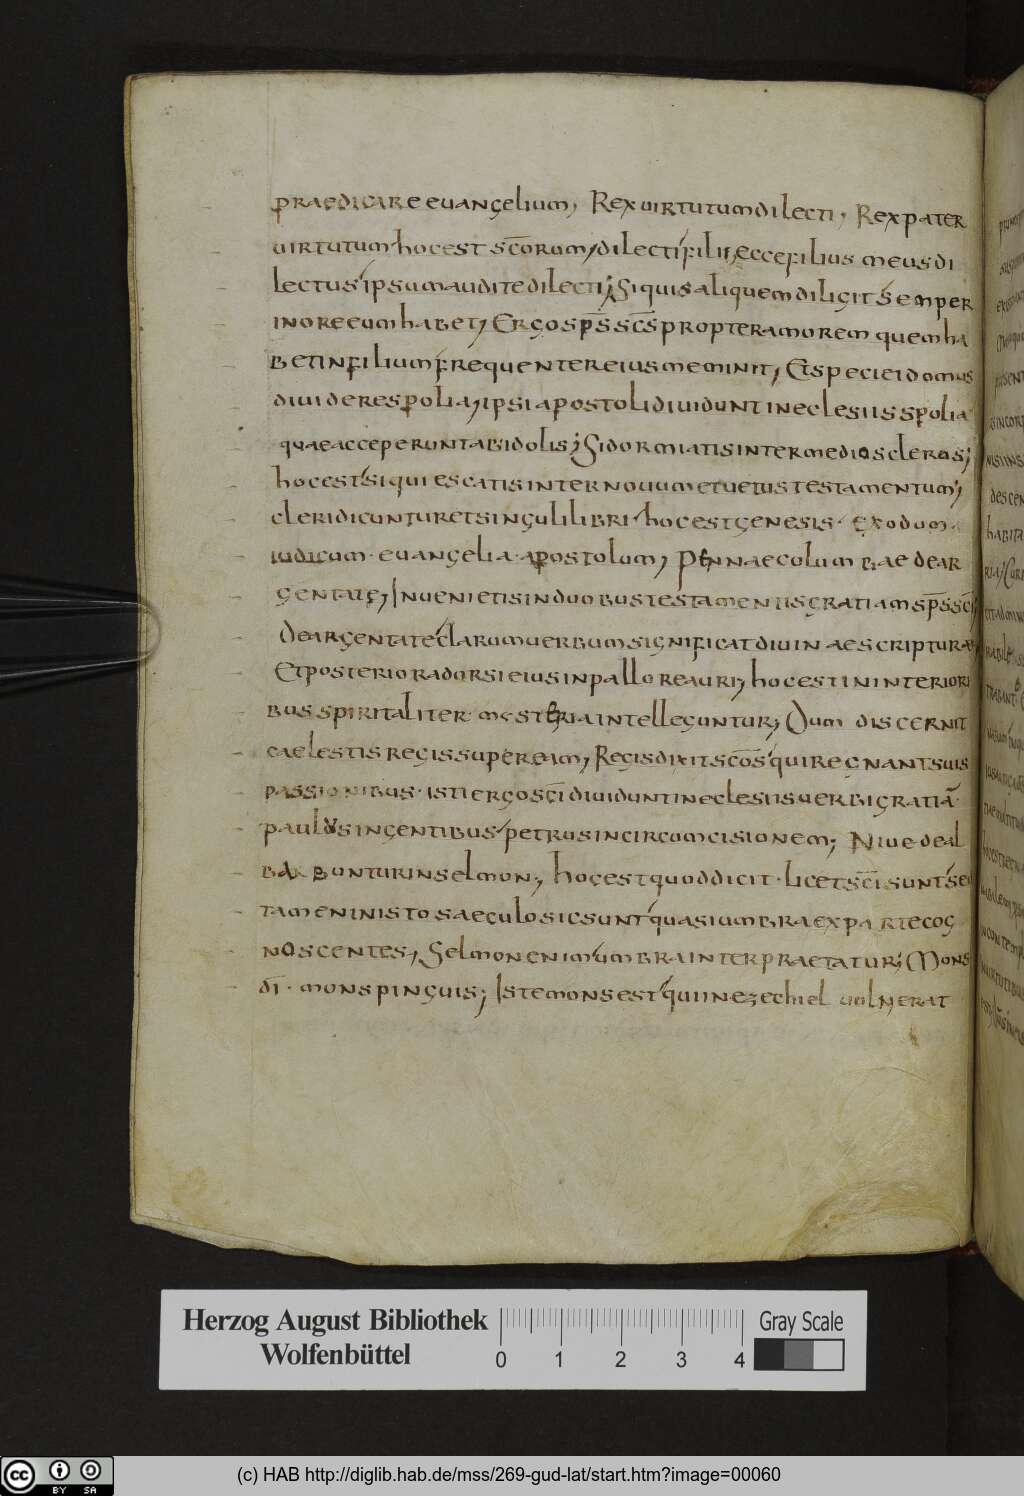 praedicare euangelium, Rex uirtutum dilecti, Rex pater
uirtutum hoc est scorum, dilecti filii, ecce filius meus di
lectus ipsum audite dilecti; Si quis aliquem diligit semper
in ore eum habet; Ergo sps scs propter amorem quem ha
bet in filium frequenter eius meminit; Et speciei domus
diuidere spolia, ipsi apostoli diuidunt in eclesiis spolia
quae acceperunt ab idolis; Si dormiatis inter medios cleros;
hoc est si quiescatis inter nouum et uetus testamentum;
cleri dicuntur et singuli libri hoc est genesis. exodum.
iudicum. euangelia. apostolum, Pennae columbae dear
gentate, Inuenietis in duobus testamentiis gratiam sps sci
Deargentate clarum uerbum significat diuinae scripturae
Et posteriora dorsi eius in pallore auri; hoc est in interiori
bus spiritaliter mysteria intelleguntur; Dum discernit
caelestis regis super eam; Reges dixit scos qui regnant suis
passionibus. isti ergo sci diuidunt in eclesiis uerbi gratiā
paulus in gentibus petrus in circumcisionem; Niue deal
babuntur in selmon; hoc est quod dicit. licet sci sunt sed
tamen in isto saeculo sic sunt quasi umbra ex parte cog
noscentes, Selmon enim umbra interpraetatur; Mons
di. mons pinguis; Iste mons est qui in ezechiel uulnerat
Herzog August Bibliothek
Wolfenbüttel
0 1 2 3 4
Gray Scale
cc BY SA
(c) HAB http://diglib.hab.de/mss/269-gud-lat/start.htm?image=00060